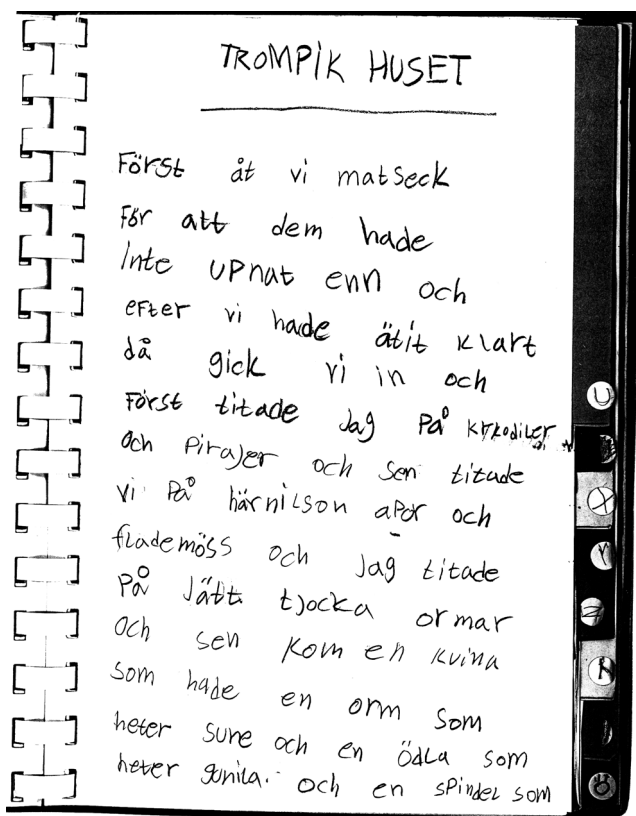 TROMPIK HUSET
Först åt vi matseck
För att dem hade
Inte UPnat enn och
efter vi hade ätit klart
då gick vi in och
Först titade Jag På krkodiler
och Pirajer och sen titade
vi På härnilson apor och
flademöss och Jag titade
På Jätt tjocka ormar
och sen kom en kvina
som hade en orm som
heter sune och en ödla som
heter gunila. och en sPindel som
U
X
Y
Z
Å
Ö